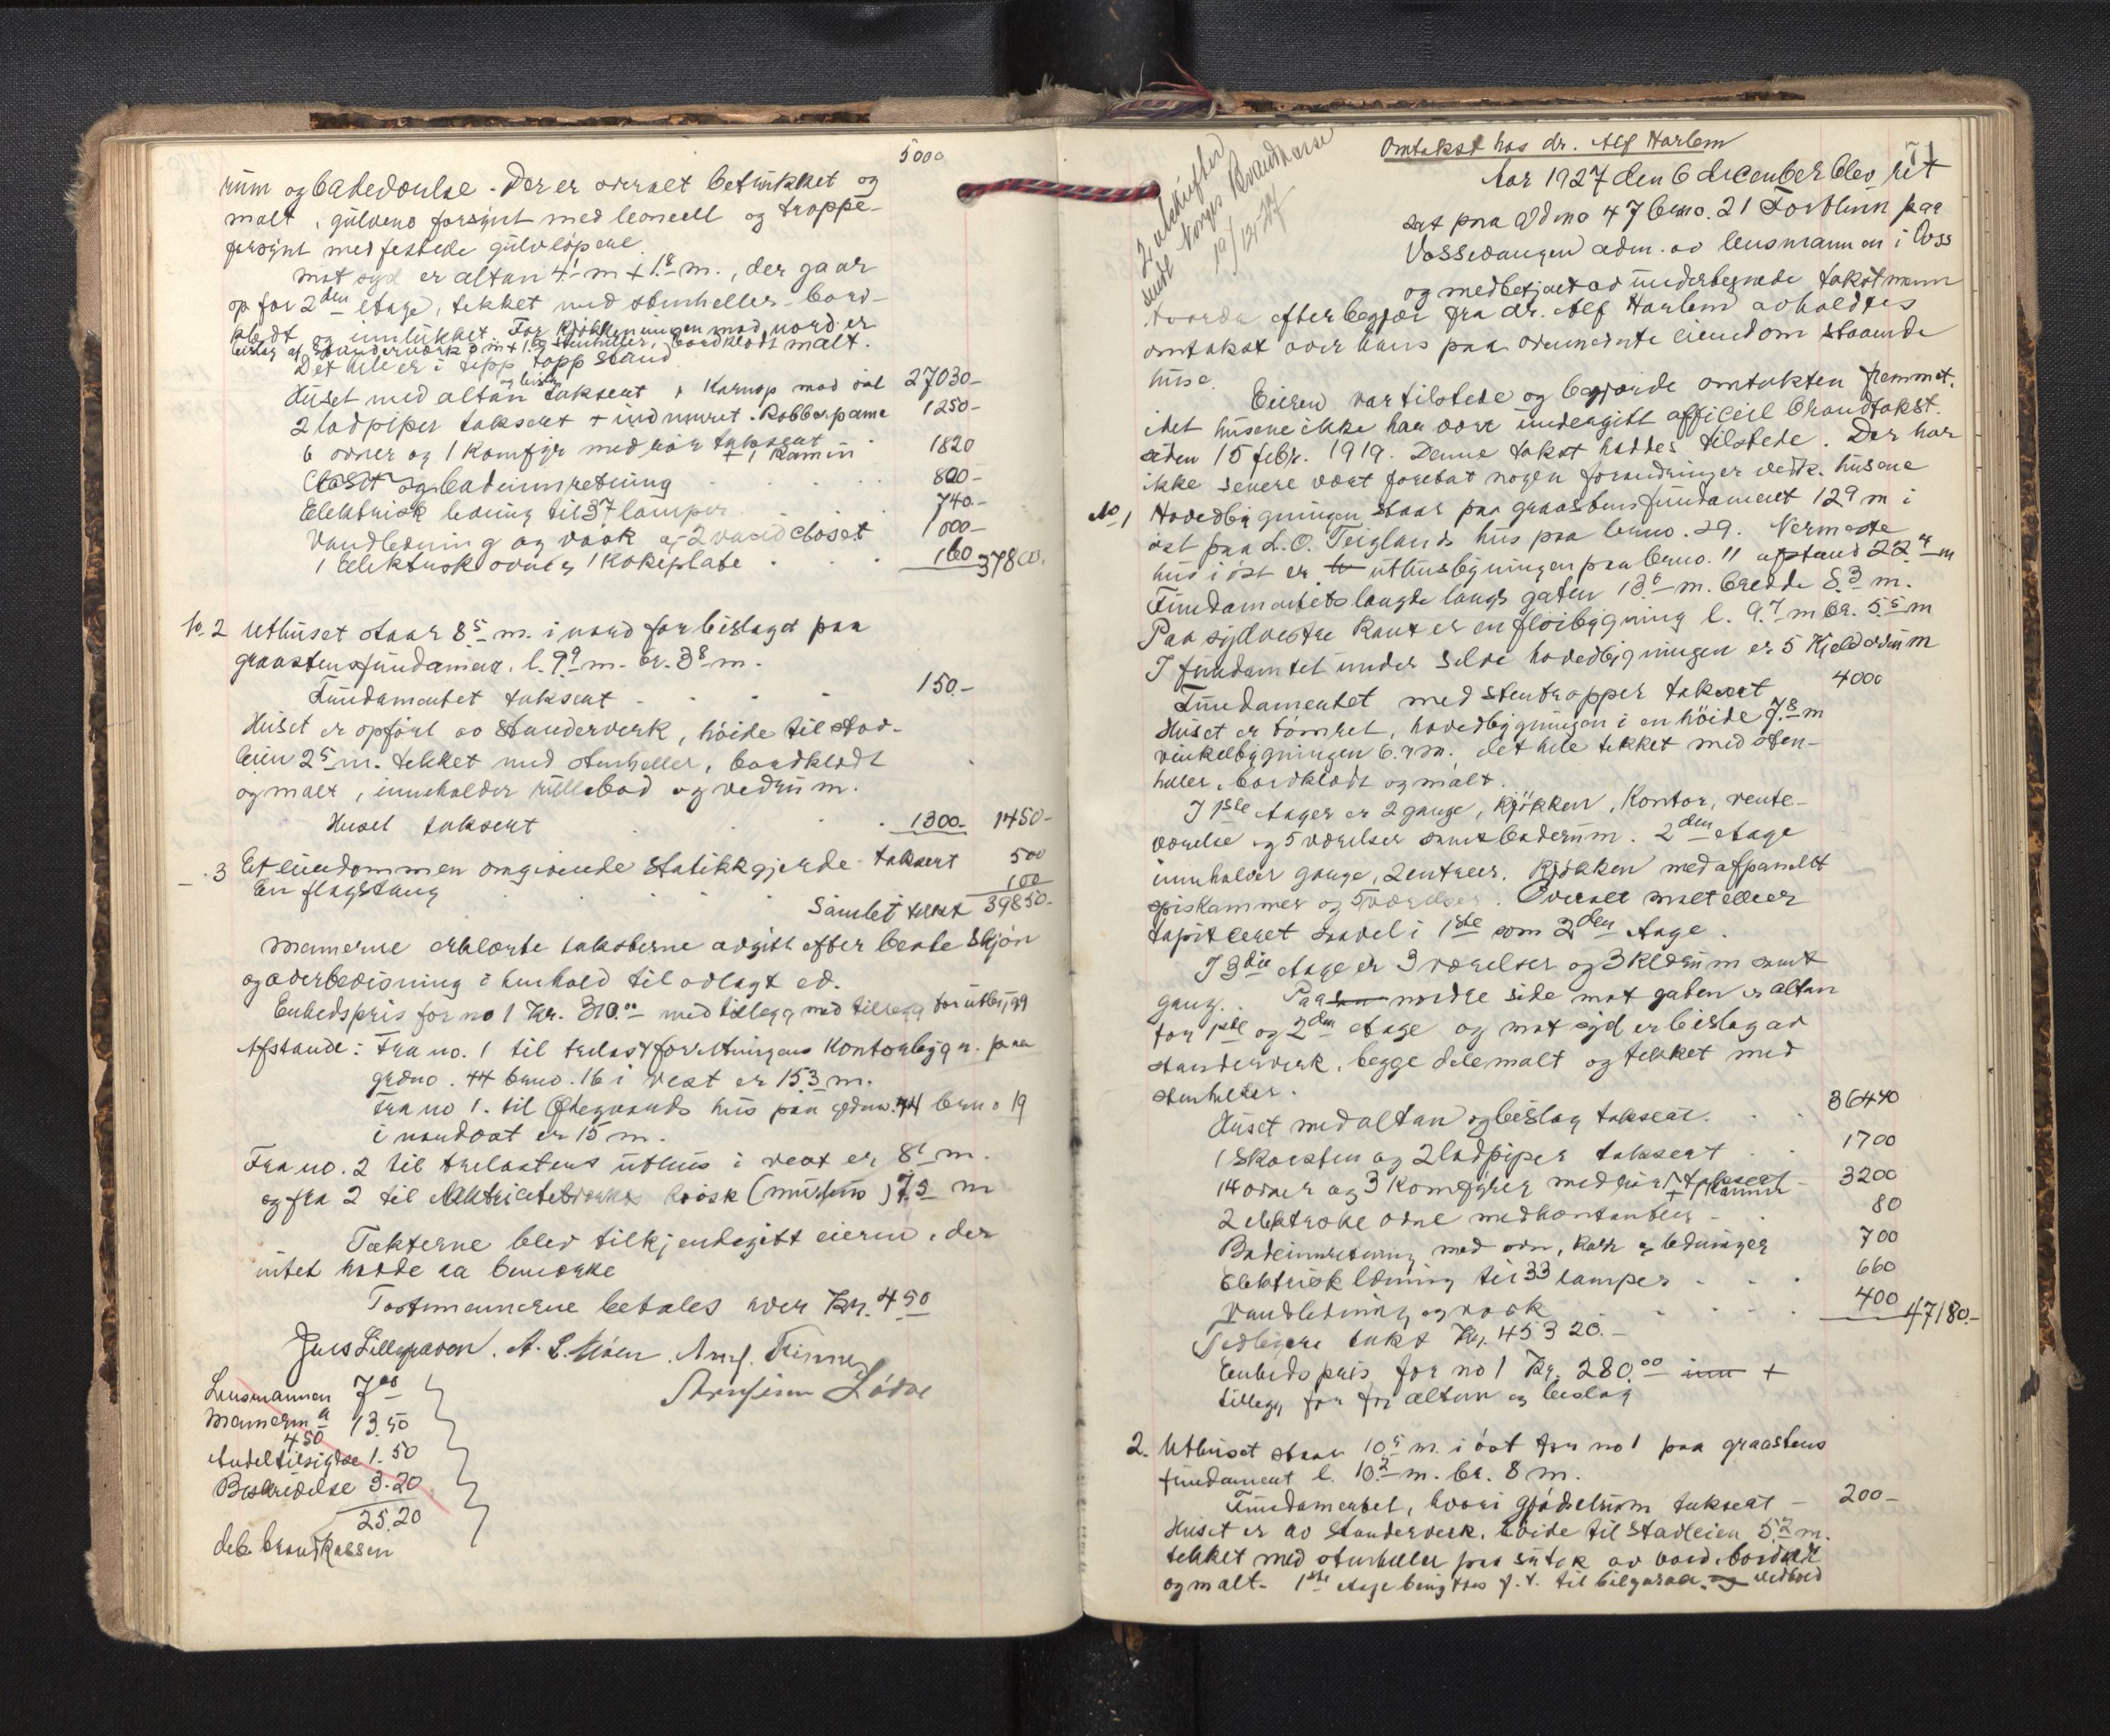 5000
rum og badeværelse. Der er overalt betrukket og
malt, gulvene forsynt med leoneell og troppe-
forsynt med festede gulvløpere.
mot syd er altan 4.1 m + 1.8 m., der gaar
op for 2den etage, tekket med stenheller, bord-
klædt og innlukket. For kjøkkeninngangen mod nord er
beislag af standerverk 3 m + 1.69 stenheller, bordklædt malt.
Det hele er i tipp topp stand
Huset med altan og beislag taksert + Karnap mod øst 27030-
2 ladpiper taksert + indmuret Kobberpanne 1250-
6 ovner og 1 Komfyr med rør taksert + 1 Kamin 1820
Closet og badeinnretning 800-
Elektrisk ledning til 37 lamper 740.-
Vandledning og vask og 2 vandcloset 1000-
1 elektrisk ovn og 1 Kokeplate 160 37800.
No. 2 Uthuset staar 8.5 m. i nord for beislaget paa
graastensfundament, l. 9.9 m. br. 3.8 m.
Fundamentet taksert 150.-
Huset er opført av Standerverk, høide til stav-
leien 2.5 m. tekket med stenheller, bordklædt
og malt, inneholder rullebod og vedrum.
Huset taksert 1300. 1450-
- 3 Et eiendommen omgivende Stakikkgjerde taksert 500
En flagstang 100
Samlet takst 39850.-
Mennerne erklærte taksterne avgitt efter beste Skjøn
og overbevisning i henhold til avlagt ed.
Enhedspris for no 1 Kr. 310.00 med tillegg med tillegg for utbygg
Afstande: Fra no. 1 til trelastforretningens Kontorbygn. paa
grdno. 44 brno. 16 i vest er 15.3 m.
Fra no 1. til Øtegaards hus paa grdno. 44 brno 19
i nordost er 15 m.
Fra no. 2 til trelastens uthus i vest er 8.1 m.
og fra 2 til Elektricitetsverkets kiosk (murhus) 7.5 m
Taksterne blev tilkjendegitt eieren, der
intet hadde aa bemerke
Tastmennerne betales hver Kr. 4.50
Jens Lillegraven. A. L. Moen. Arnf. Finne
Arnfinn Lødve
Lensmannen 7.00
Mennerne a 4.50 13.50
Andel tilsigelse 1.50
Beskrivelse 3.20
25.20
deb. brandkassen
71
2 utskrifter
sendt Norges Brandkasse
19/12-27
Omtakst hos dr. Alf Harlem
Aar 1927 den 6 december blev ret
sat paa Grdno 47 brno. 21 Fortunn paa
Vossevangen adm. av lensmannen i Voss
og medbetjent av underteg­nede takstmenn
hvorda efter begjær fra dr. Alf Harlem avholdtes
omtakst over hans paa ovennevnte eiendom staaende
huse.
Eieren var tilstede og begjærde omtakten fremmet,
idet husene ikke har vært undergitt officiel brandtakst
siden 15 febr. 1919. Denne takst haddes tilstede. Der har
ikke senere vært foretat nogen forandringer vedk. husene
No 1 Hovedbygningen staar paa graastensfundament 129 m i
øst paa L. O. Teiglands hus paa brno. 29. Nermeste
hus i øst er uthusbygningen paa brno. 11 afstand 22.4 m
Fundamentets længde langs gaten 13.6 m. bredde 8.3 m.
Paa sydvestre kant er en fløibygning l. 9.7 m br. 5.5 m
I fundamentet under selve hovedbygningen er 5 Kjelderrum
Fundamentet med stentropper taksert 4000
Huset er tømret, hovedbygningen i en høide 7.8 m
vinkelbygningen 6.4 m., det hele tekket med sten-
heller, bordklædt og malt.
I 1ste etager er 2 gange, kjøkken, Kontor, vente-
værelse og 5 værelser samt baderum. 2den etage
inneholder gange, 2 entreer, Kjøkken med afpanelt
spiskammer og 5 værelser. Overalt malt eller
tapitseret saavel i 1ste som 2den etage.
I 3die etage er 3 værelser og 3 klærum samt
gang. Paa nordre side mot gaten er altan
for 1ste og 2den etage og mot syd er beislag av
standerverk, begge dele malt og tekket med
stenheller.
Huset med altan og beislag taksert. 36440
1 Skorsten og 2 ladpiper taksert 1700
14 ovner og 3 Komfyrer med rør taksert + 1 Kamin 3200
2 elektriske ovne med kontanter 80
Badeinnretning med ovn, kar og ledninger 700
Elektrisk ledning til 33 lamper 660
Vandledning og vask 400 47180.-
Tidligere takst Kr. 45320.-
Enhedspris for no 1 Kr. 280.00 +
tillegg for altan og beislag
2. Uthuset staar 10.5 m. i øst fra no 1 paa graastens
fundament l. 10.2 m. br. 8 m.
Fundamentet, hvori gjødselrum taksert 200-
Huset er av Standerverk, høide til stavleien 5.2 m.
tekket med stenheller paa sutak av bord, bordklædt
og malt. 1ste etage benyttes f. t. til bilgarage, vedbod